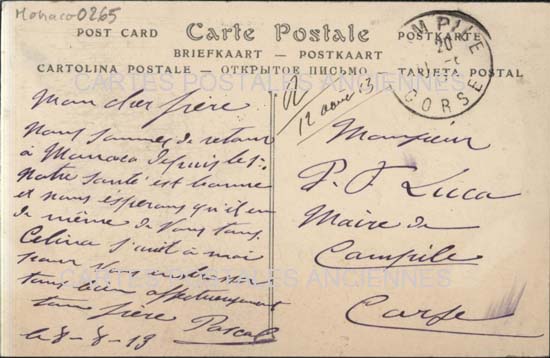 Monaco0265
POST CARD Carte Postale POSTKARTE
BRIEFKAART — POSTKAART
CARTOLINA POSTALE — ОТКРЫТОЕ ПИСЬМО — TARJETA POSTAL
CARTES POSTALES ANCIENNES
MPILE
20
CORSE
12 aout 13
Mon cher frère
Nous sommes de retour
à Monaco depuis le 1.
Notre santé est bonne
et nous espérons qu'il en
de même de vous tous
Celina s'unit à moi
pour vous embrasser
tous bien affectueusement
ton frère Pascal
le 8-8-13
Monsieur
P. F. Luca
Maire de
Campile
Corse
CARTES POSTALES ANCIENNES